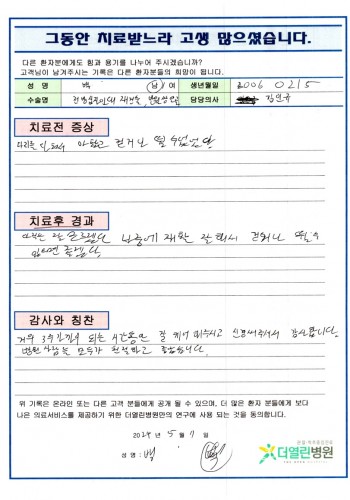 그동안 치료받느라 고생 많으셨습니다.
다른 환자분에게도 힘과 용기를 나누어 주시겠습니까?
고객님이 남겨주시는 기록은 다른 환자분들의 희망이 됩니다.
성 명 백 남 여 생년월일 2006 0215
수술명 담당의사 김민규
치료전 증상
아팠고 걷거나 뛸 수 없었다
치료후 경과
나중에 재활 잘해서 걷거나 뛸 수
있으면 좋겠다
감사와 칭찬
겨우 3주간 되는 시간동안 잘 케어 해주시고 신경써주셔서 감사합니다.
병원 사람들 모두가 친절하고 좋았습니다.
위 기록은 온라인 또는 다른 고객 분들에게 공개 될 수 있으며, 더 많은 환자 분들에게 보다
나은 의료서비스를 제공하기 위한 더열린병원만의 연구에 사용 되는 것을 동의합니다.
2024 5 11
성 명 : 백
더열린병원